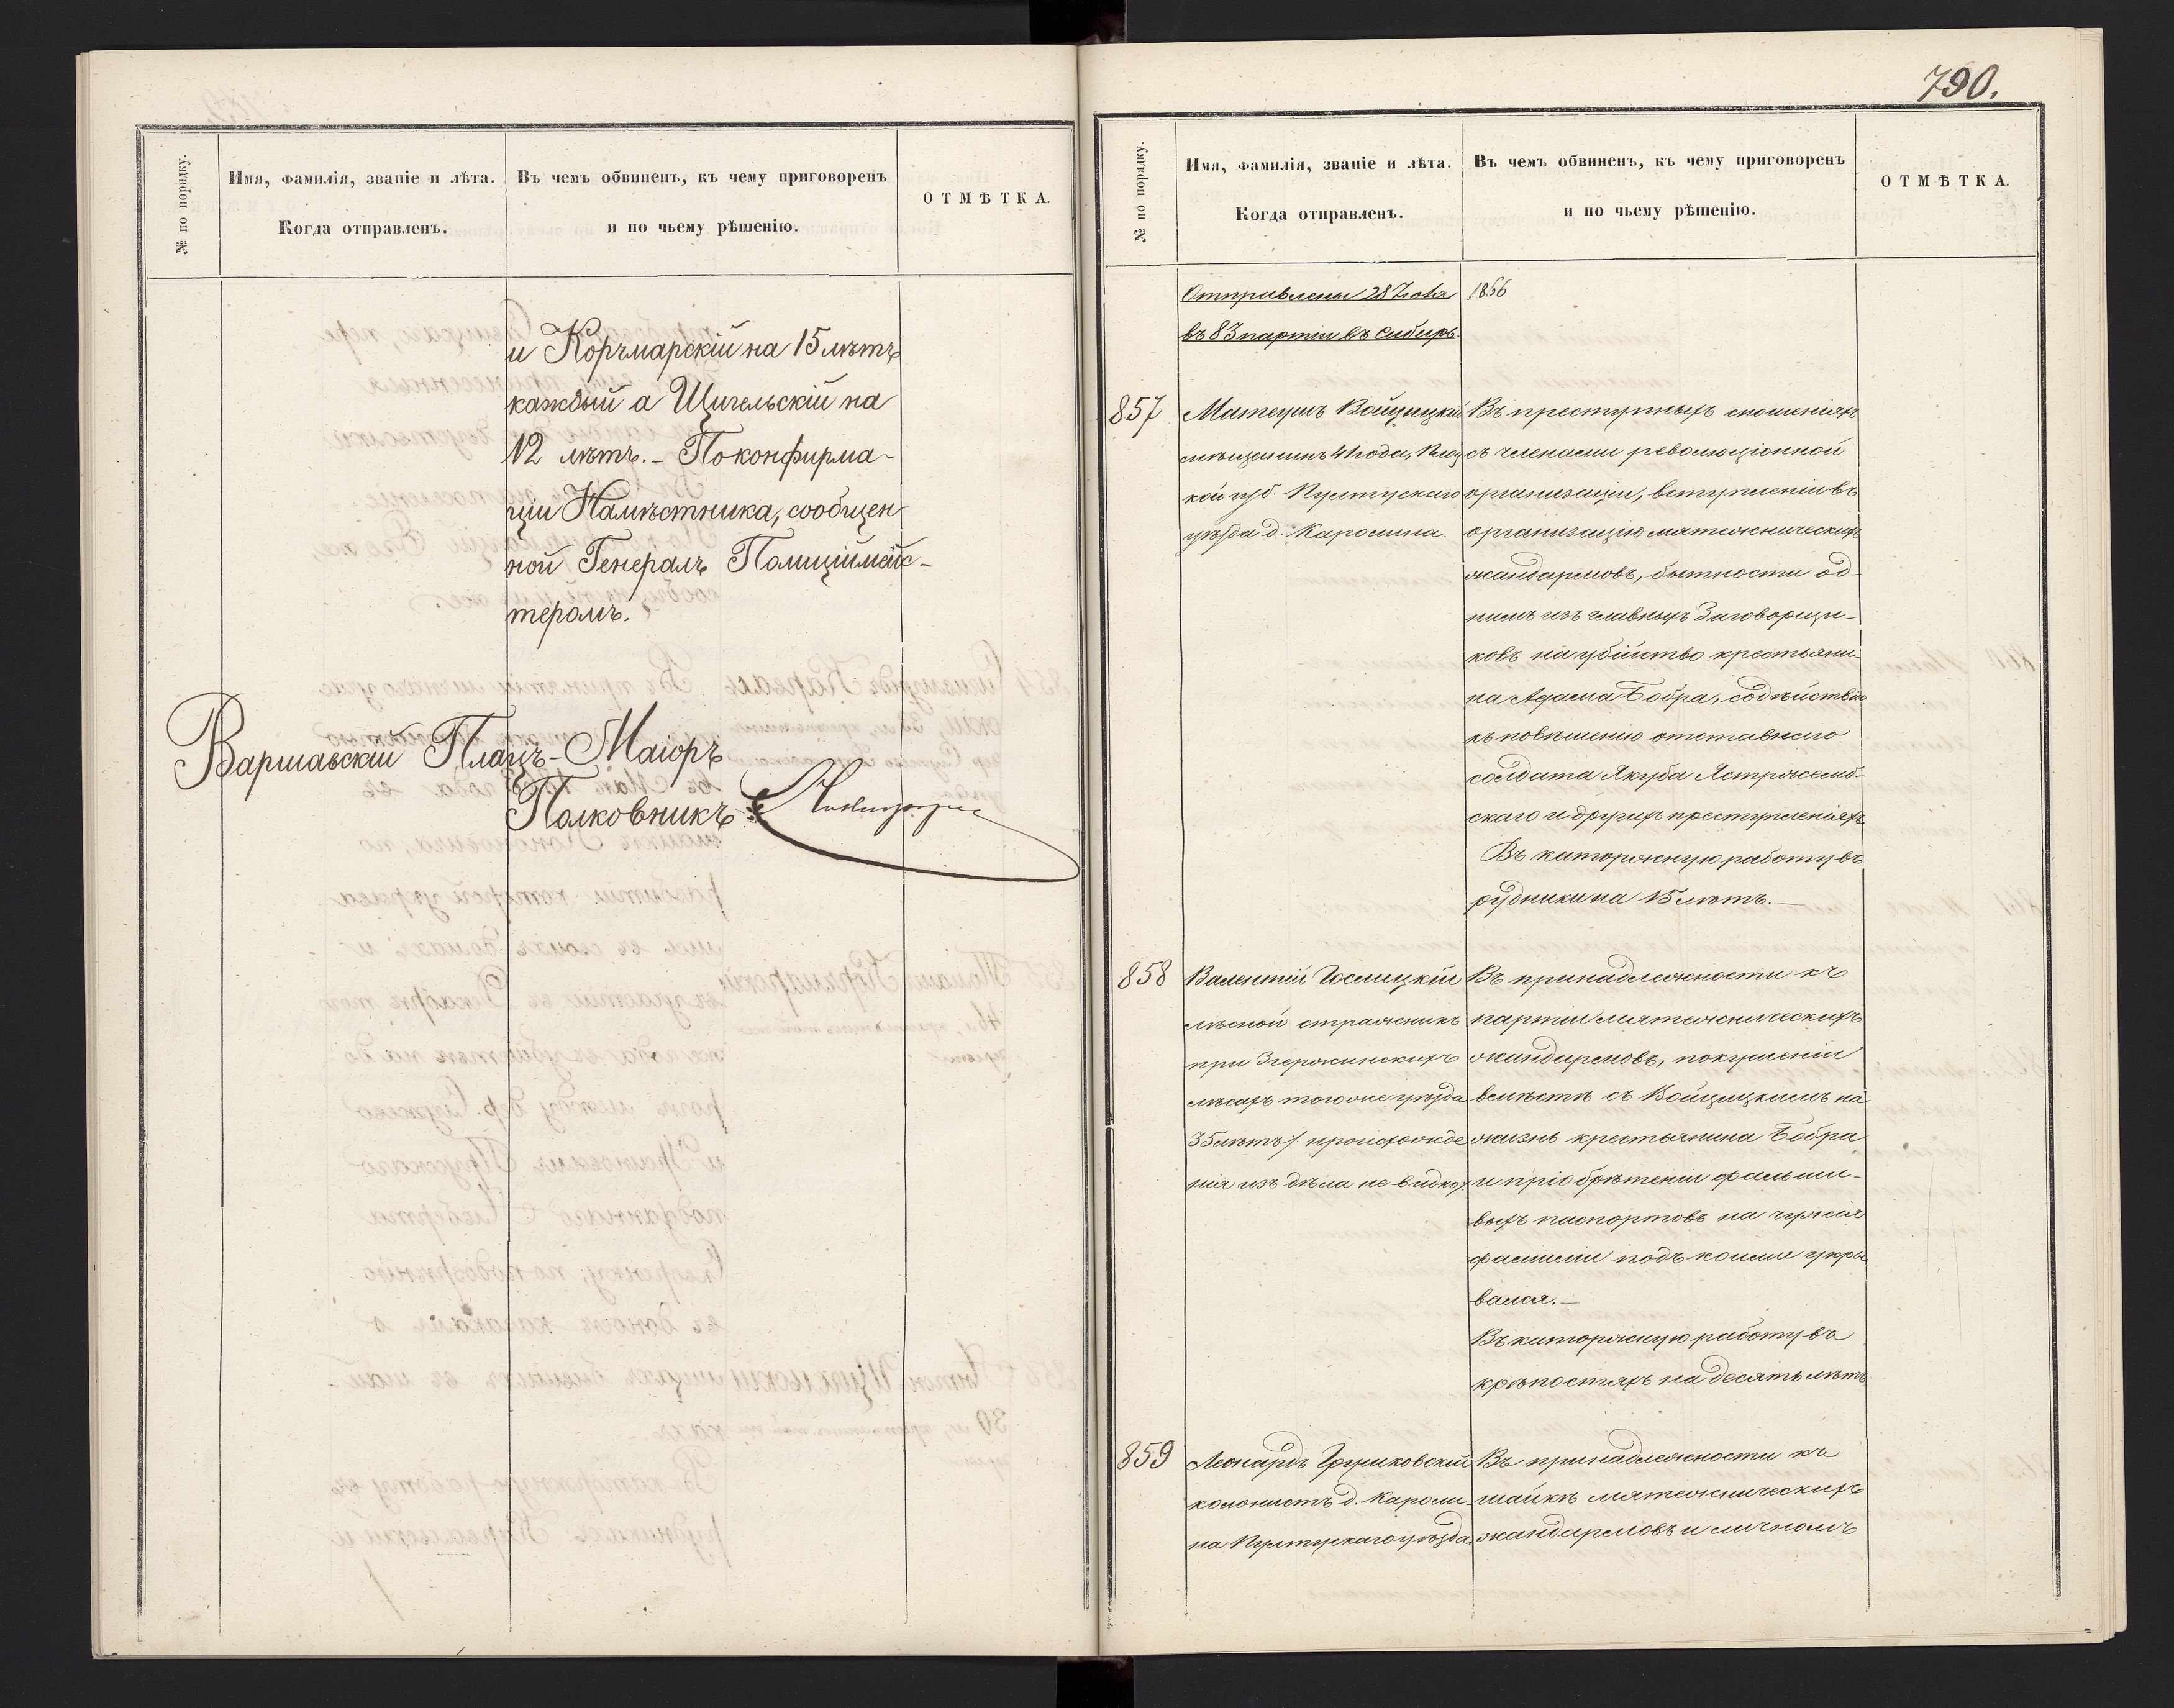 № по порядку.
Имя, фамилія, званіе и лѣта.
Когда отправленъ.
Въ чемъ обвиненъ, къ чему приговоренъ
и по чьему рѣшенію.
ОТМѢТКА.
и Корчмарскій на 15 лѣтъ
каждый а Щигельскій на
12 лѣтъ. – По конфирма-
ціи Намѣстника, сообщен-
ной Генералъ Полиціймейс-
теромъ.
Варшавскій Плацъ-Маіоръ
Полковникъ
790.
№ по порядку.
Имя, фамилія, званіе и лѣта.
Когда отправленъ.
Въ чемъ обвиненъ, къ чему приговоренъ
и по чьему рѣшенію.
ОТМѢТКА.
Отправлены 28 1866
въ 83 партіи въ Сибирь.
857
Матеушъ Войцицкій
мѣщанинъ 41 года, Плоц
кой губ. Пултускаго
уѣзда д. Каролина
Въ преступныхъ сношеніяхъ
съ членами революціонной
организаціи, вступленіи въ
организацію мятежническихъ
жандармовъ, бытности од-
нимъ изъ главныхъ Заговорщи-
ковъ на убійство крестьяни-
на Адама Бобра, содѣйствіи
къ повѣшенію отставнаго
солдата Якуба Ястржемб-
скаго и другихъ преступленіяхъ
Въ каторжную работу въ
рудникина 15 лѣтъ. –
858
Валентій Гослицкій
лѣсной стражникъ
при Згержинскихъ
лѣсахъ того же уѣзда
35 лѣтъ /: происхожде
нія изъ дѣла не видно/:
Въ принадлежности къ
партіи мятежническихъ
жандармовъ, покушеніи
вмѣстѣ съ Войцицкимъ на
жизнь крестьянина Бобра
и пріобрѣтеніи фальши-
выхъ паспортовъ на чужія
фамиліи подъ коими укры
вался. –
Въ каторжную работу въ
крѣпостяхъ на десять лѣтъ
859
Леонардъ
колонистъ д. Кароли-
на Пултускаго уѣзда
Въ принадлежности къ
шайкѣ мятежническихъ
жандармовъ и личномъ